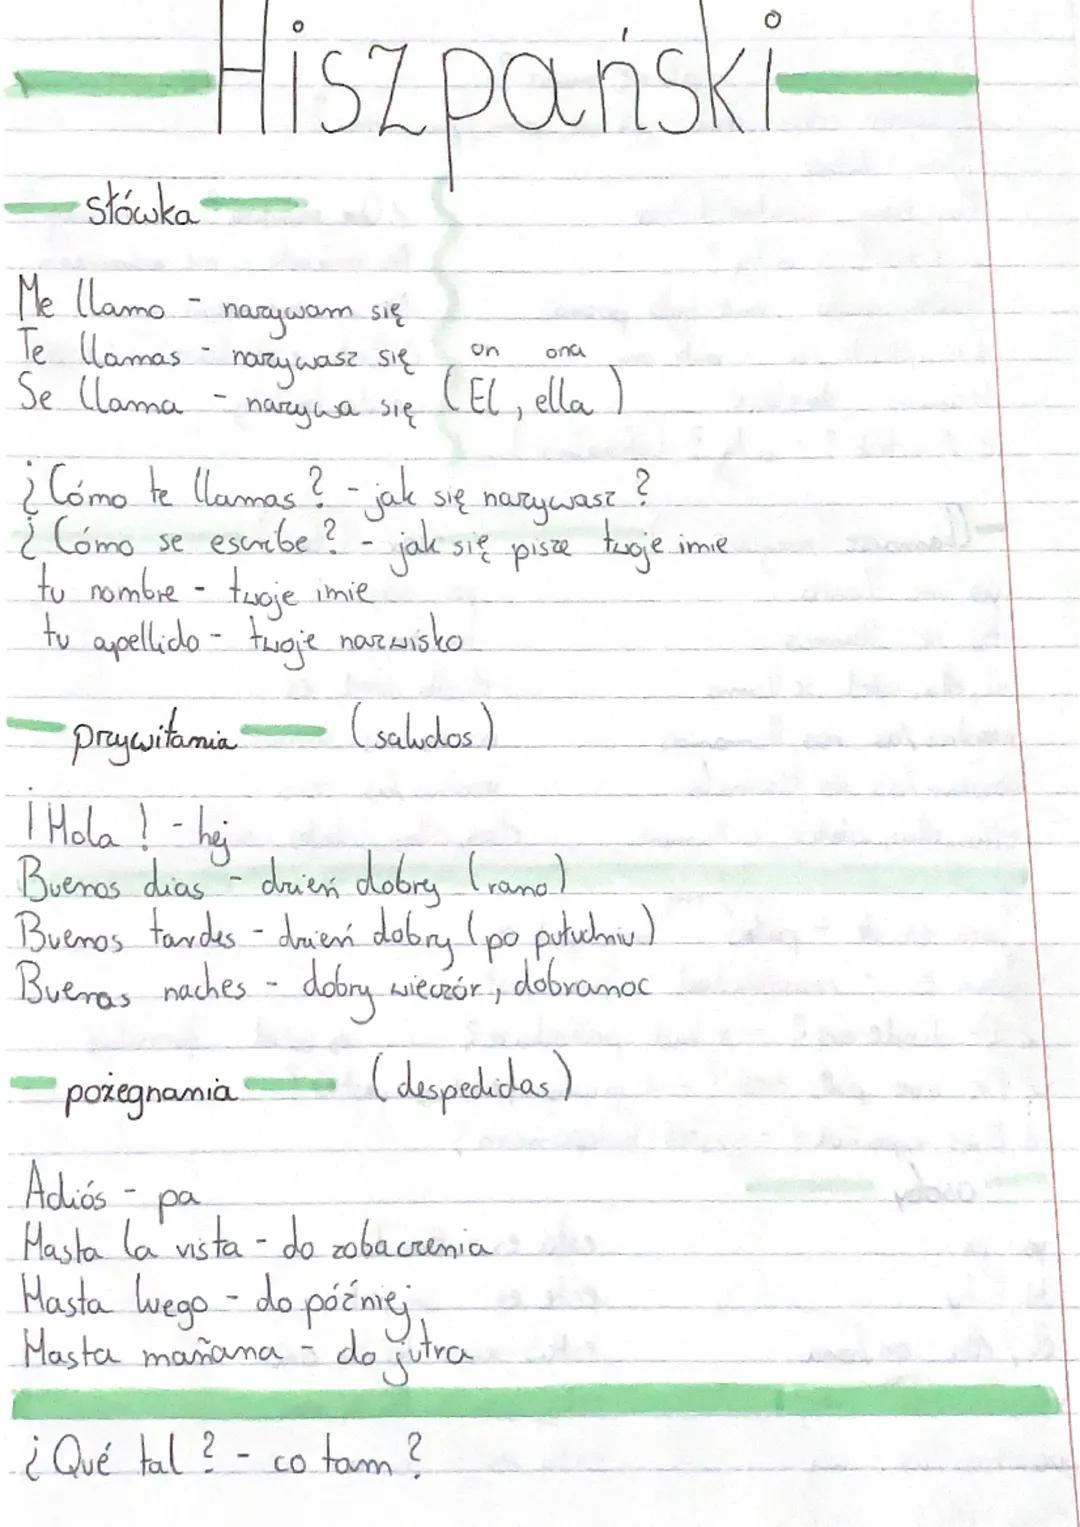 Hiszpański
słówka
Me llamo - nazywam się
Te llamas - nazywasz się
on ona
Se llama - nazywa się (El, ella)
¿Cómo te llamas? - jak się nazywasz?
¿Cómo se escribe? - jak się pisze twoje imie
tu nombre - twoje imie
tu apellido - twoje nazwisko
przywitania (saludos)
¡Hola! - hej
Buenos dias - dzień dobry (rano)
Buenos tardes - dzień dobry (po południu)
Buenas naches - dobry wieczór, dobranoc
pożegnania (despedidas)
Adiós - pa
Hasta la vista - do zobaczenia
Hasta luego - do później
Hasta mañana - do jutra
¿Qué tal? - co tam?